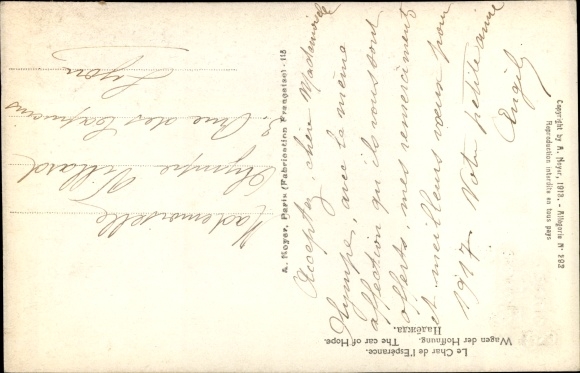 Le Char de l'Espérance.
Wagen der Hoffnung. The car of Hope.
Надежда.
Acceptez, chère Mademoiselle
Olympe, avec la même
affection qu'ils vous sont
offerts, mes remerciments
et meilleurs vœux pour
1917. Votre petite amie
Angèle
A. Noyer, Paris (Fabrication Française) - 115
Mademoiselle
Olympe Villard
3. Rue des Capucins
Lyon
Copyright by A. Noyer, 1913. - Allegorie N° 292
Reproduction interdite en tous pays